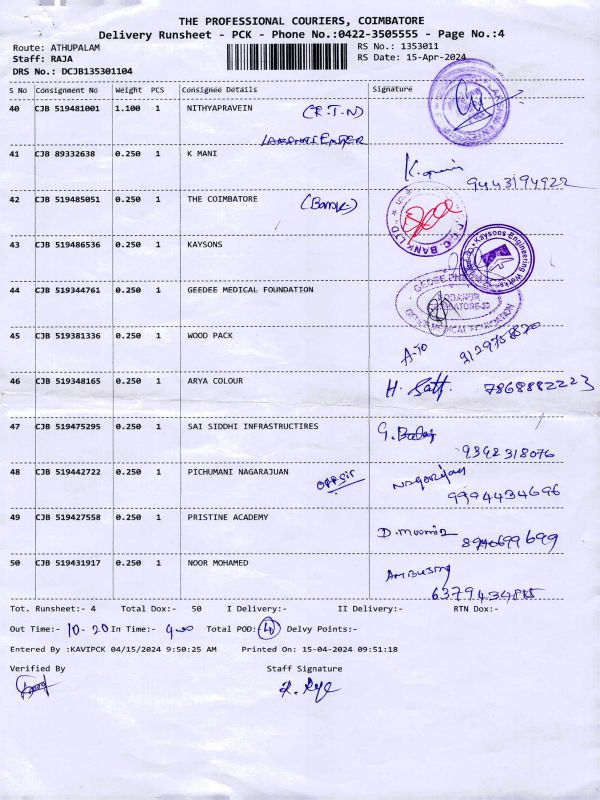 THE PROFESSIONAL COURIERS, COIMBATORE
Delivery Runsheet - PCK - Phone No.:0422-3505555 - Page No.:4
Route: ATHUPALAM RS No.: 1353011
Staff: RAJA RS Date: 15-Apr-2024
DRS No.: DCJB135301104
S No Consignment No Weight PCS Consignee Details Signature
40 CJB 519481001 1.100 1 NITHYAPRAVEIN (R.T.N)
41 CJB 89332638 0.250 1 K MANI K.mani
9443194922
42 CJB 519485051 0.250 1 THE COIMBATORE (Bank)
BANK LTD
43 CJB 519486536 0.250 1 KAYSONS Kaysons Engineering
44 CJB 519344761 0.250 1 GEEDEE MEDICAL FOUNDATION
MEDICAL FOUNDATION
45 CJB 519381336 0.250 1 WOOD PACK
46 CJB 519348165 0.250 1 ARYA COLOUR H. 7868882223
47 CJB 519475295 0.250 1 SAI SIDDHI INFRASTRUCTIRES G.
9392318076
48 CJB 519442722 0.250 1 PICHUMANI NAGARAJUAN Nagarajan
9994434696
49 CJB 519427558 0.250 1 PRISTINE ACADEMY
50 CJB 519431917 0.250 1 NOOR MOHAMED
Tot. Runsheet:- 4 Total Dox:- 50 I Delivery:- II Delivery:- RTN Dox:-
Out Time:- 10.20 In Time:- Total POD: Delvy Points:-
Entered By :KAVIPCK 04/15/2024 9:50:25 AM Printed On: 15-04-2024 09:51:18
Verified By Staff Signature